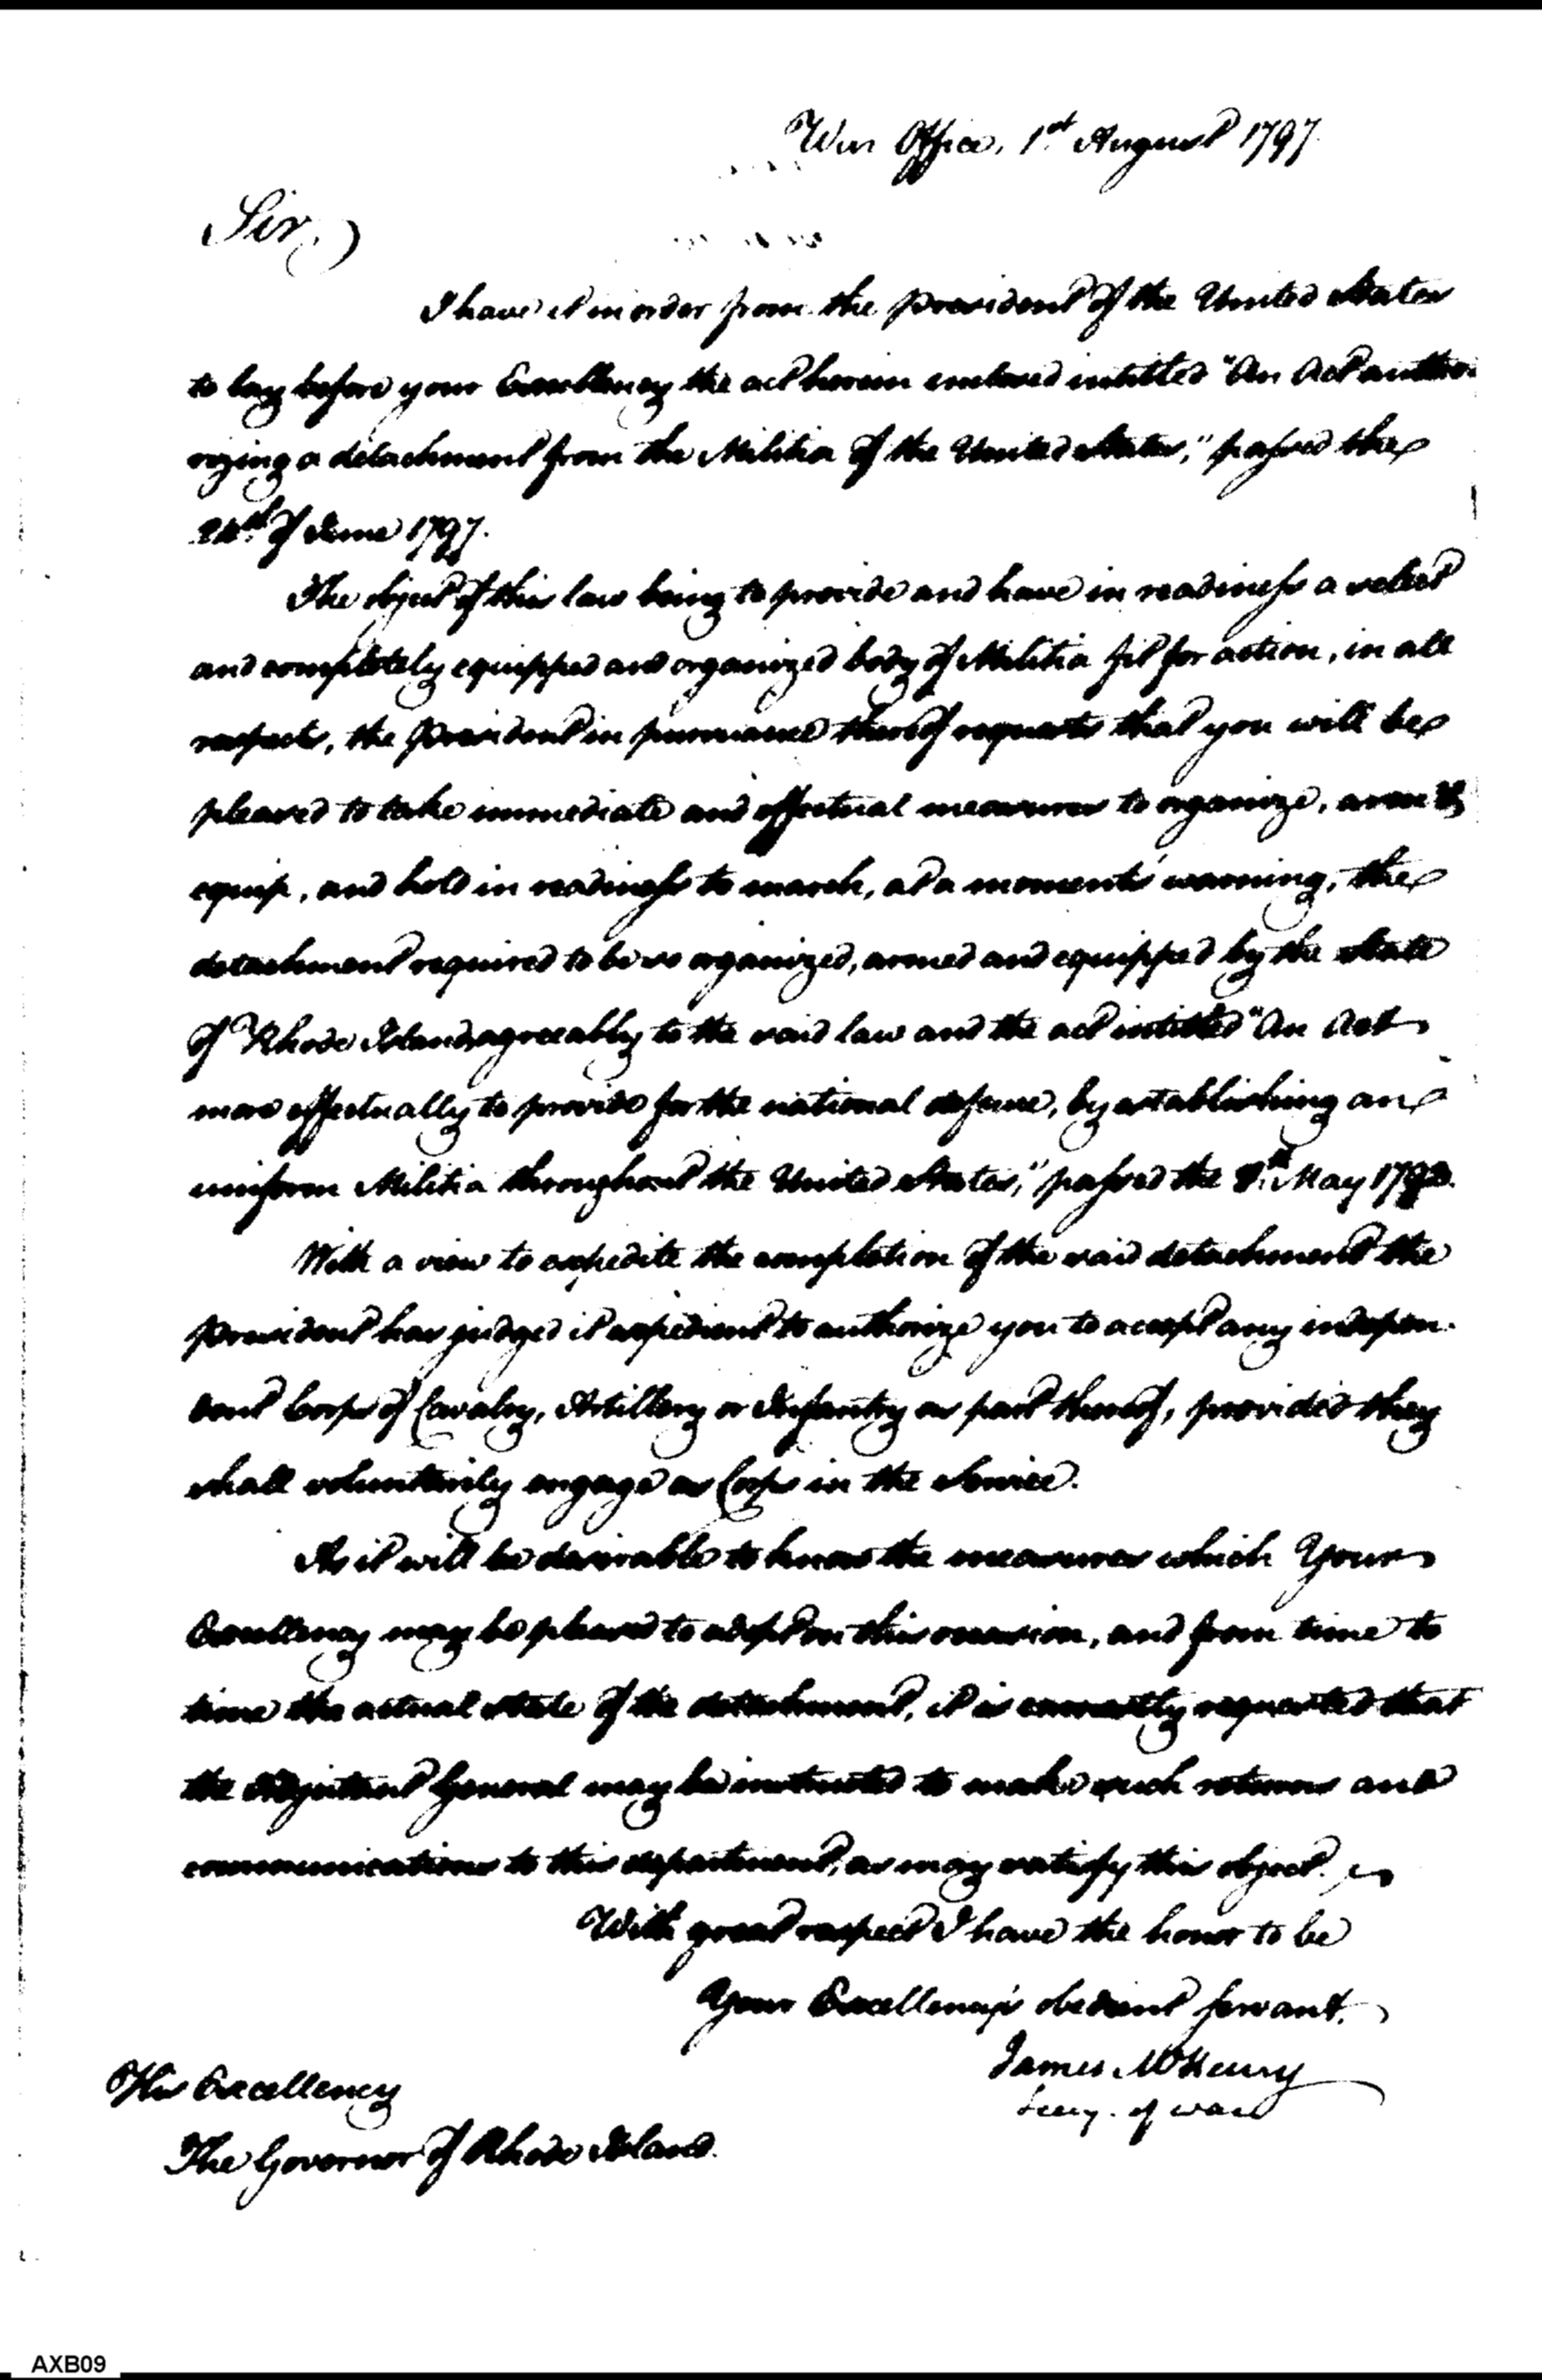 War Office, 1st August 1797.
Sir,
I have it in order from the President of the United States
to lay before your Excellency the act herein enclosed intitled "An Act autho-
rizing a detachment from the Militia of the United States," passed the
24th of June 1797.
The object of this law being to provide and have in readiness a select
and completely equipped and organized body of Militia fit for action, in all
respects, the President in pursuance thereof requests that you will be
pleased to take immediate and effectual measures to organize, arm &
equip, and hold in readiness to march, at a moments warning, the
detachment required to be so organized, armed and equipped by the State
of Rhode Island agreeably to the said law and the act intitled "An Act
more effectually to provide for the national defence, by establishing an
uniform Militia throughout the United States," passed the 8th May 1792.
With a view to expedite the completion of the said detachment the
President has judged it expedient to authorize you to accept any indepen-
dent Corps of Cavalry, Artillery or Infantry as part thereof, provided they
shall voluntarily engage as Corps in the Service.
As it will be desirable to know the measures which Your
Excellency may be pleased to adopt on this occasion, and from time to
time the actual state of the detachment, it is earnestly requested that
the Adjutant General may be instructed to make such returns and
communications to this department, as may satisfy this object.
With great respect I have the honor to be
Your Excellency's obedient servant.
James McHenry
Secy. of war
His Excellency
The Governor of Rhode Island.
AXB09